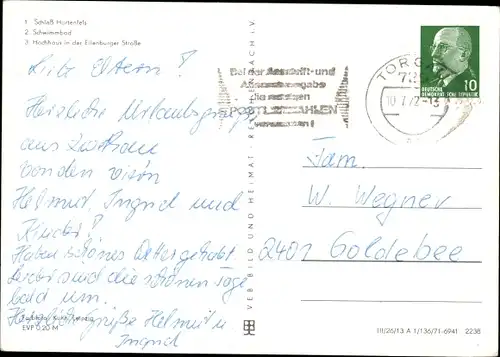 1 Schloß Hartenfels
2. Schwimmbad
3. Hochhaus in der Eilenburger Straße
Eltern!
Herzliche Urlaubsgrüße
aus
von den
Helmut, Ingrid und
Kinder!
Haben schönes Wetter gehabt
sind die schönen Tage
bald um.
Herzliche Grüße Helmut u
Ingrid
EVP 0,20 M
VEB BILD UND HEIMAT · REICHENBACH i. V.
Bei der Anschrift- und
Absenderangabe
die
POSTLEITZAHLEN
verwenden!
TORGAU
10.7.72-13
DEUTSCHE
DEMOKRATISCHE REPUBLIK
10
Fam.
W. Wegner
2401 Goldebee
III/26/13 A 1/136/71-6941 2238